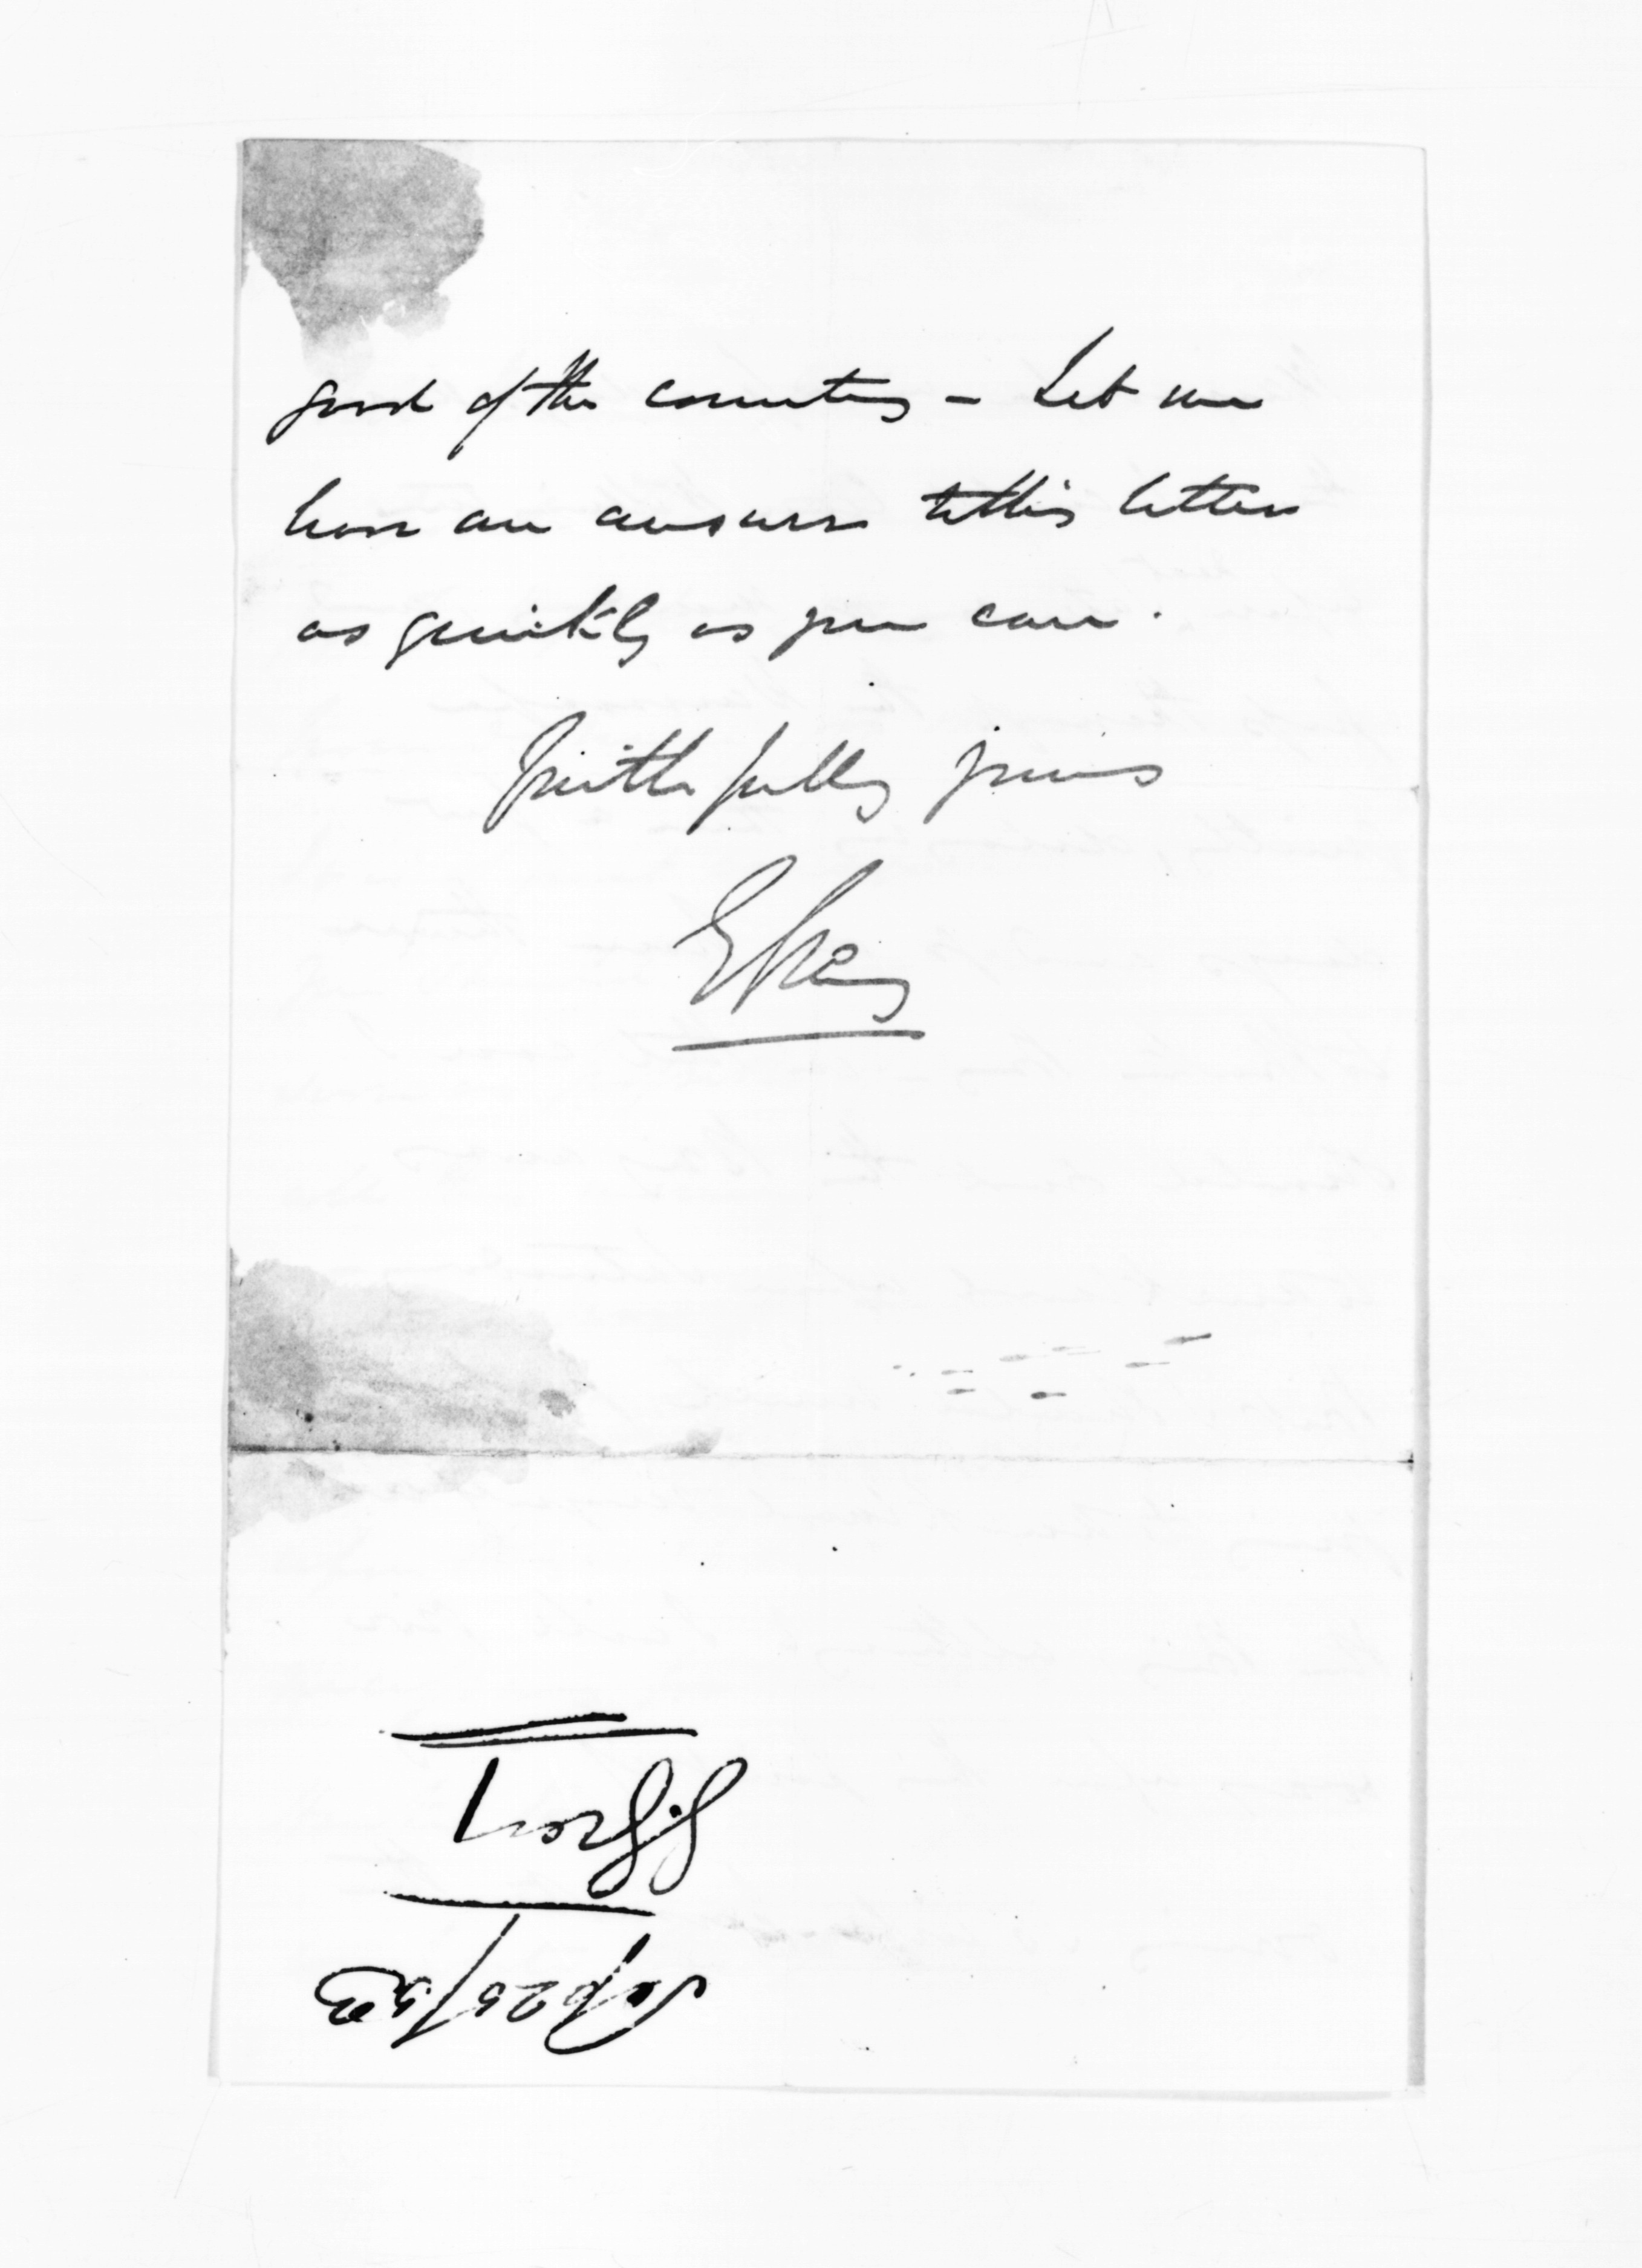 good of the country – Let me
have an answer to this letter
as quickly as you can.
Faithfully yours
Sep 25/53